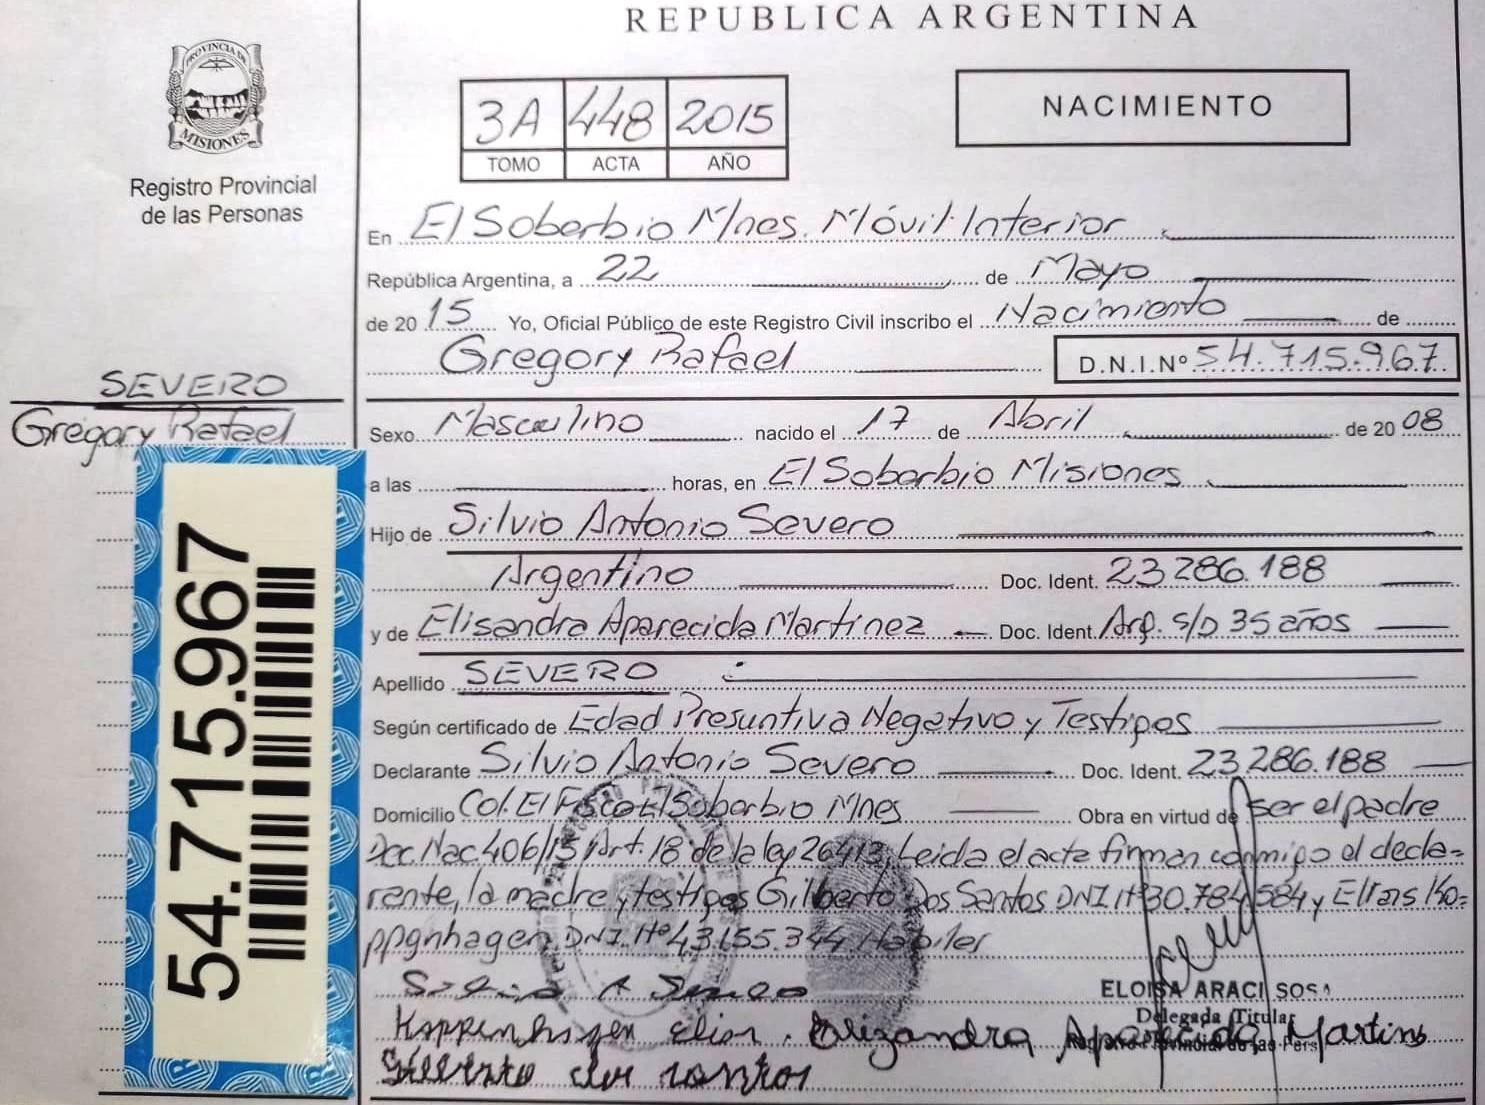 REPUBLICA ARGENTINA
PROVINCIA DE
MISIONES
Registro Provincial
de las Personas
3A 448 2015
TOMO ACTA AÑO
NACIMIENTO
En El Soberbio Mnes. Móvil Interior
República Argentina, a 22 de Mayo
de 2015 Yo, Oficial Público de este Registro Civil inscribo el Nacimiento de
Gregory Rafael D.N.I.Nº 54.715.967
SEVERO
Gregory Rafael
Sexo Masculino nacido el 17 de Abril de 2008
a las horas, en El Soberbio Misiones
Hijo de Silvio Antonio Severo
Argentino Doc. Ident. 23286.188
y de Elisandra Aparecida Martinez Doc. Ident. Arg. s/D 35 años
Apellido SEVERO
Según certificado de Edad Presuntiva Negativo y Testigos
Declarante Silvio Antonio Severo Doc. Ident. 23286.188
Domicilio Col. El Fisco El Soberbio Mnes Obra en virtud de ser el padre
Dec. Nac 406/15 Art. 18 de la ley 26413, Leida el acte firman conmigo el decla=
rante, la madre y testigos Gilberto Dos Santos DNI Nº 30.784.584 y Elias Ko=
ppenhagen DNI. Nº 43.155.344 Habiles
54.715.967
ELOISA ARACI SOSA
Delegada Titular
Koppenhagen Elias. Elizandra Aparecida Martins
Gilberto dos santos